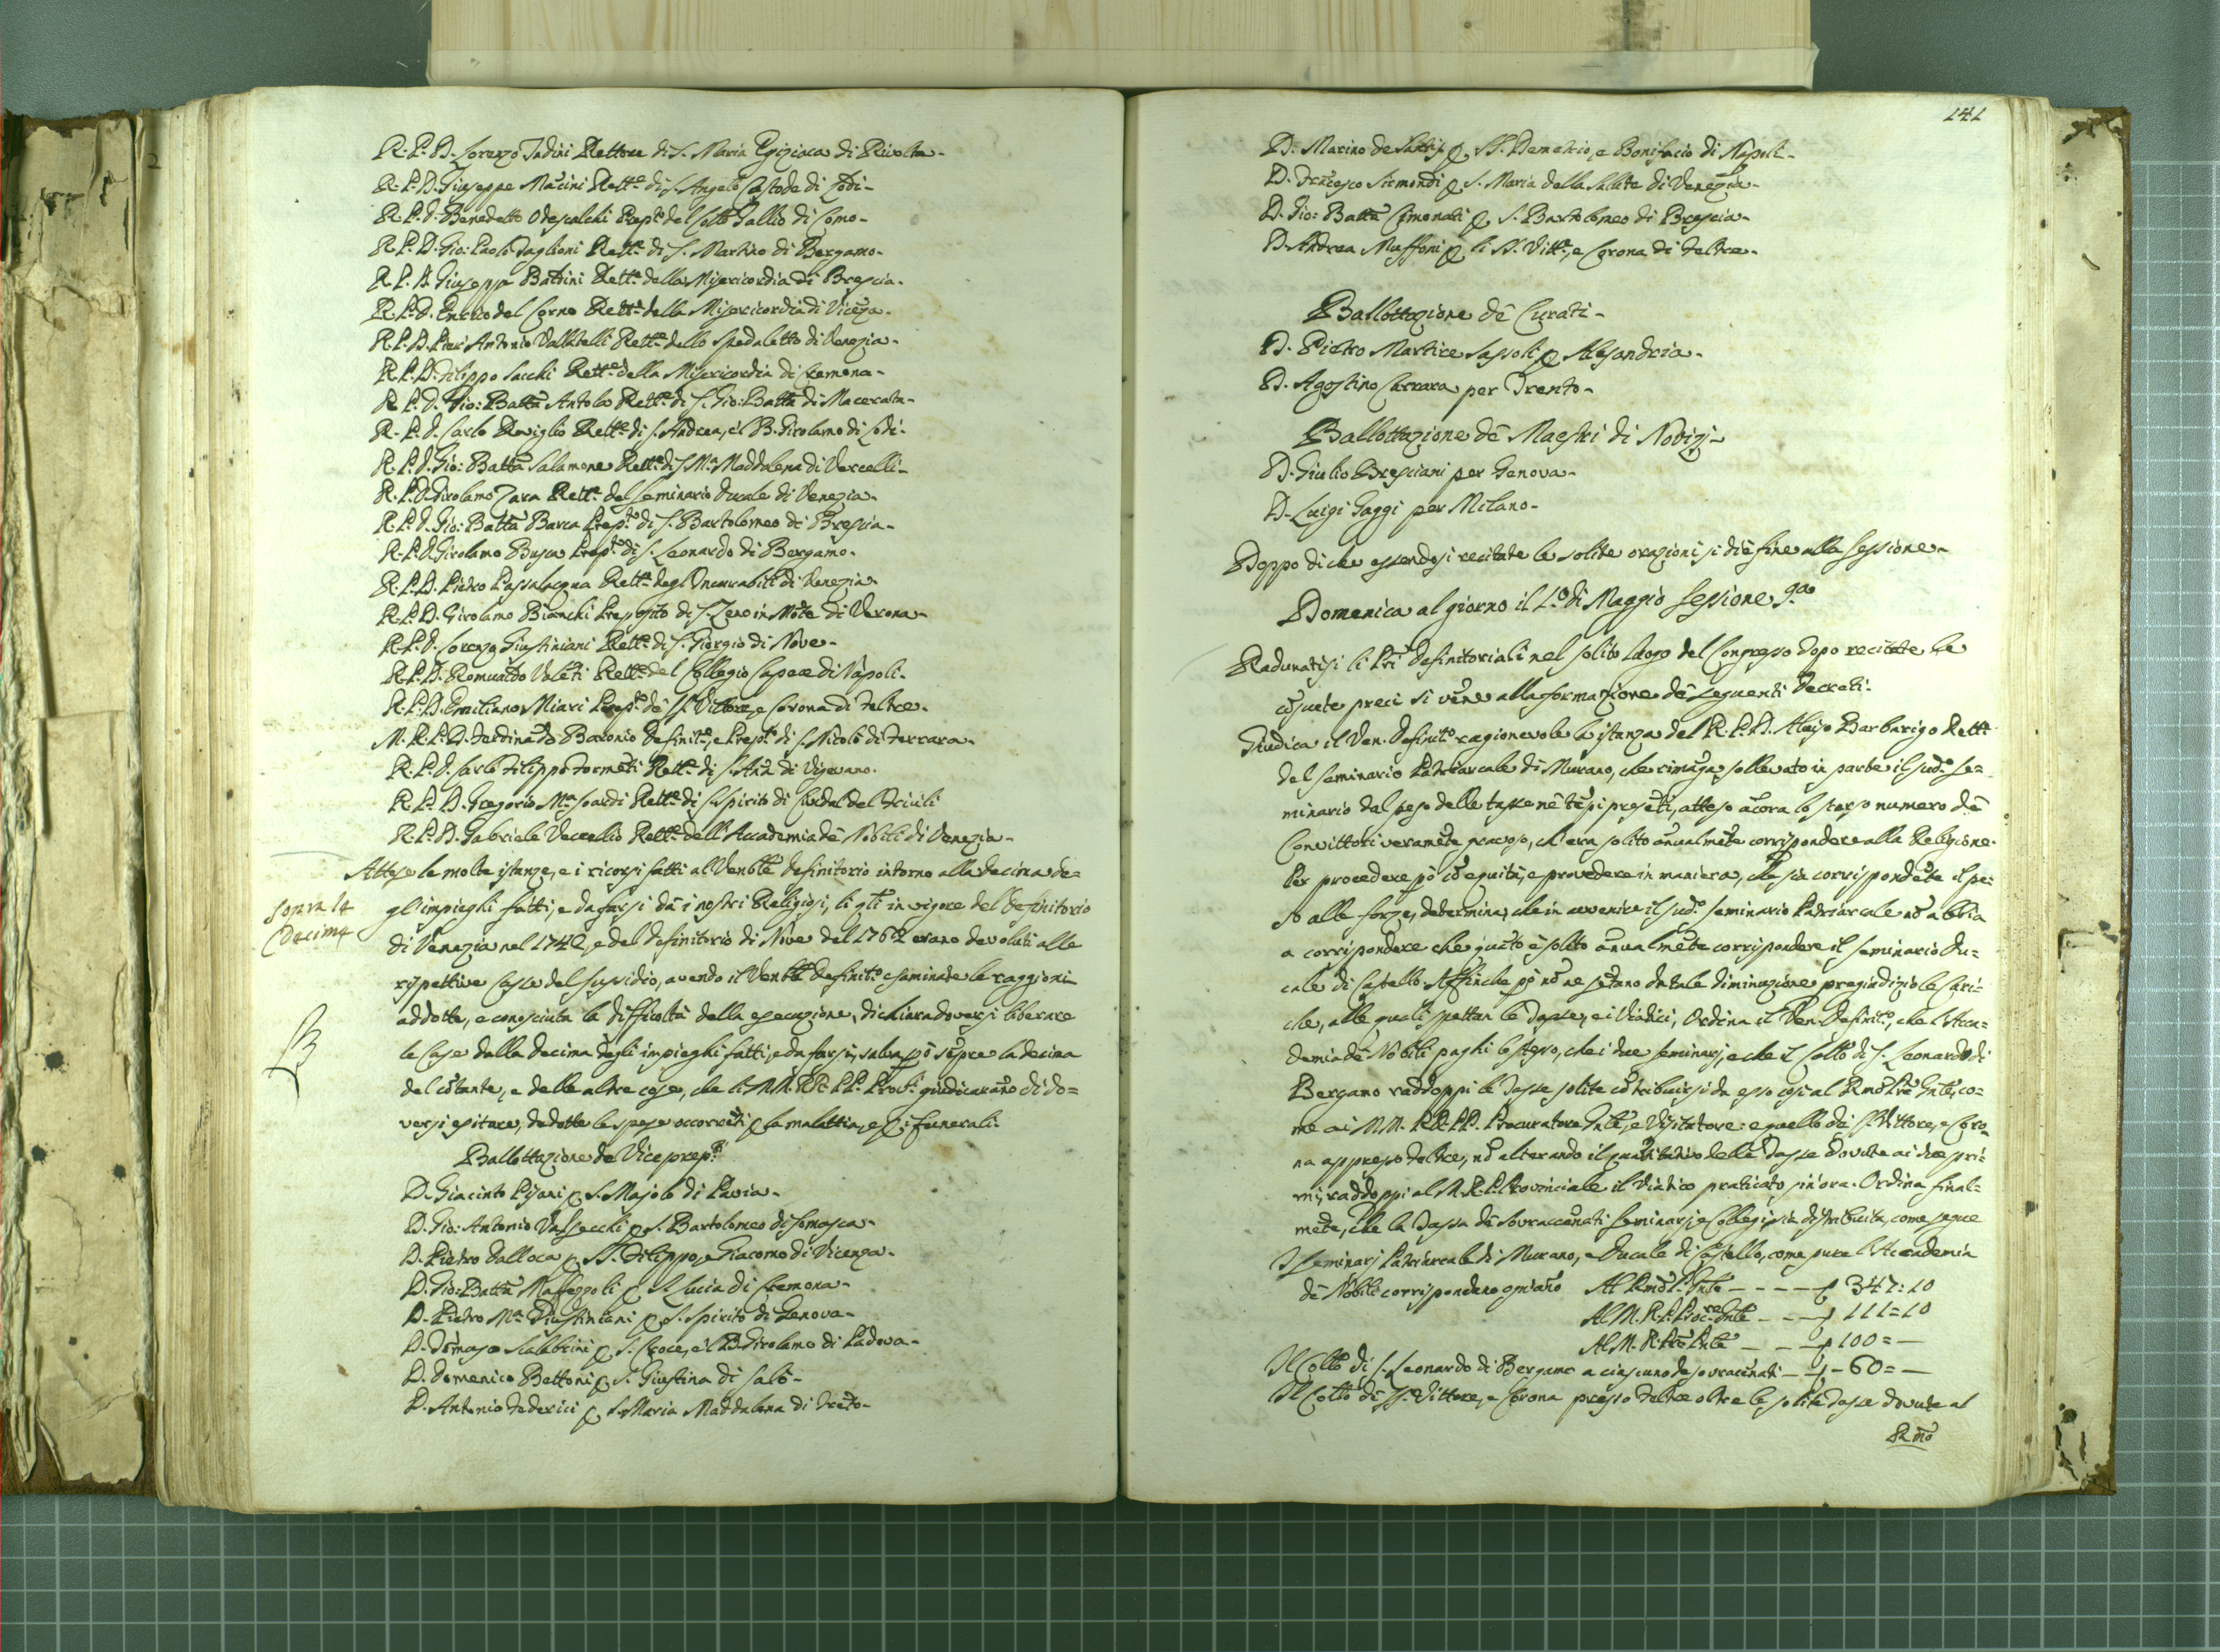 R. P. D. Lorenzo Tadini Rettore di S. Maria Egiziaca di Rivolta-
R. P. D. Giuseppe Mãcini Rett.e di S. Angelo Custode di Lodi-
R. P. D. Benedetto Odescalchi Prep.to del Coll.o Gallio di Como-
R. P. D. Gio: Paolo Taglioni Rett.e di S. Martino di Bergamo-
R. P. D. Giuseppe Battini Rett.e della Misericordia di Brescia.
R. P. D. Enrico del Corno Rett.e della Misericordia di Vicẽza.
R. P. D. Pier Antonio Rett.e dello Spedaletto di Venezia-
R. P. D. Filippo Sacchi Rett.e della Misericordia di Cremona-
R. P. D. Gio: Batta Antola Rett.e di S. Gio: Batta di Macerata-
R. P. D. Carlo Roviglio Rett.e di S. Andrea, e'l B. Girolamo di Lodi-
R. P. D. Gio: Batta Salamone Rett.e di S. M.a Maddalena di Vercelli-
R. P. D. Girolamo Zara Rett.e del Seminario Ducale di Venezia-
R. P. D. Gio: Batta Barca Prep.to di S. Bartolomeo di Brescia-
R. P. D. Girolamo Busca Prep.to di S. Leonardo di Bergamo-
R. P. D. Pietro Passalacqua Rett.e degl'Incurabili di Venezia-
R. P. D. Girolamo Bianchi Preposito di S. Zeno in Mõte di Verona-
R. P. D. Lorenzo Giustiniani Rett.e di S. Giorgio di Nove-
R. P. D. Romualdo Valẽti Rett.e del Collegio Capece di Napoli.
R. P. D. Emiliano Miari Prep.to dẽ SS. Vittore, e Corona di Feltre.
M. R. P. D. Ferdinãdo Baronio Definit.e, e Prep.to di S. Nicolò di Ferrara-
R. P. D. Carlo Filippo Formẽti Rett.e di S. Anã di Vigevano.
R. P. D. Gregorio M.a Soardi Rett.e di S. Spirito di Cividal del Friuli
R. P. D. Gabriele Vecellio Rett.e dell'Accademia dẽ Nobili di Venezia-
Attese le molte istanze, e i ricorsi fatti al Venble Definitorio intorno alla decima de=
Sopra le
Decime
gl'impieghi fatti, e da farsi dã i nostri Religiosi, li q̃li in vigore del Definitorio
di Venezia nel 1742, e del Definitorio di Nove del 1762 erano devoluti alle
rispettive Casse del sussidio, avendo il Venble Definit.o esaminate le raggioni
addotte, e conosciuta la difficoltà della esecuzione, dichiara doversi liberare
le Case dalla decima degli impieghi fatti, e da farsi, salva p̃ò sẽpre la decima
del cõtante, e delle altre cose, che li MM. RR. PP. Prov.li giudicarãno di do=
versi esitare, dedotte le spese occorrẽti p la malattia, e p i funerali.
Ballottazione dẽ Viceprep.ti
D. Giacinto Pisani p S. Majolo di Pavia-
D. Gio: Antonio Valsecchi p S. Bartolomeo di Somasca-
D. Pietro Dalloca p SS. Filippo, e Giacomo di Vicenza-
D. Gio: Batta Maffezzoli p S. Lucia di Cremona-
D. Pietro M.a Giustiniani p S. Spirito di Genova-
D. Tõmaso Scalabrini p S. Croce, e'l B. Girolamo di Padova-
D. Domenico Bettoni p S. Giustina di Salò-
D. Antonio Federici p S. Maria Maddalena di Trẽto-
141
D. Marino de Sanctis p SS. Demetrio, e Bonifacio di Napoli-
D. Frãcesco Sirmondi p S. Maria della Salute di Venezia-
D. Gio: Batta Cimonati p S. Bartolomeo di Brescia-
D. Andrea Maffoni p li SS. Vitt.e, e Corona di Feltre-
Ballottazione dẽ Curati-
D. Pietro Martire Sassoli p Alesandria-
D. Agostino Carrara per Trento-
Ballottazione dẽ Maestri di Novizi-
D. Giulio Bresciani per Genova-
D. Luigi Gaggi per Milano-
Doppo di che essendosi recitate le solite orazioni si diè fine alla Sessione-
Domenica al giorno il 1.o di Maggio Sessione 9.a
Radunatisi li Pri Definitoriali nel solito luogo del Congresso dopo recitate le
cõsuete preci si vẽne alla formazione dẽ seguenti Decreti-
Giudica il Ven. Definit.o ragionevole la istanza del R. P. D. Alvise Barbarigo Rett.e
del Seminario Patriarcale di Murano, che rimãga sollevato in parte il sud.o Se=
minario dal peso delle tasse nẽ tẽpi presẽti, atteso ãcora lo scarso numero dẽ
Convittori veramẽte gravoso, ch'era solito ãnualmẽte corrispondere alla Religione.
Per procedere p̃ò cõ equità, e provedere in maniera, che sia corrispondẽte il pe=
so alle forze, determina, che in avvenire il sud.o Seminario Patriarcale nõ abbia
a corrispondere che quãto è solito ãnualmẽte corrispondere il Seminario Du=
cale di Castello. Affinche p̃ò nõ ne sẽtano da tale diminuzione pregiudizio le Cari=
che, alle quali spettan le Tasse, e i Viatici, Ordina il Ven. Definit.o, che l'Acca=
demia dẽ Nobili paghi lo stesso, che i due Seminarj, e che il Coll.o di S. Leonardo di
Bergamo raddoppi le Tasse solite cõtribuirsi da esso così al Rmo Pre Gnle, co=
me ai MM. RR. PP. Procuratore Gnle, e Visitatore: e quello di SS. Vittore, e Coro=
na appresso Feltre, nõ alterando il quãtitativo delle Tasse dovute ai due pri=
mi, raddoppi al M. R. P. Provinciale il Viatico praticato sin'ora. Ordina final=
mẽte, che la Tassa dẽ sovraccẽnati Seminarj, e Collegj sia distribuita, come segue
I Seminarj Patriarcale di Murano, e Ducale di Castello, come pure l'Accademia
dẽ Nobili corrispondano ogni ãno Al Rmo P. Gnle - - - - £ 347:10
Al M. R. P. Proc.re Gnle - - - £ 111=10
Al M. R. Pre Pnle - - - £ 100=-
Il Coll.o di S. Leonardo di Bergamo a ciascuno de sovraccẽnati - £ - 60=-
Il Coll.o di SS. Vittore, e Corona presso Feltre oltre le solite Tasse dovute al
Rmo